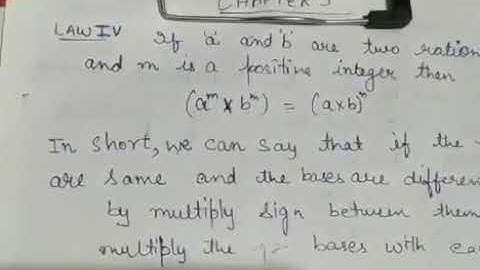 CHAPTER 3
LAW IV If 'a' and 'b' are two ration
and m is a positive integer then
(aᵐ × bᵐ) = (a×b)ᵐ
In short, we can say that if the
are same and the bases are differen
by multiply sign between them
multiply the bases with eac